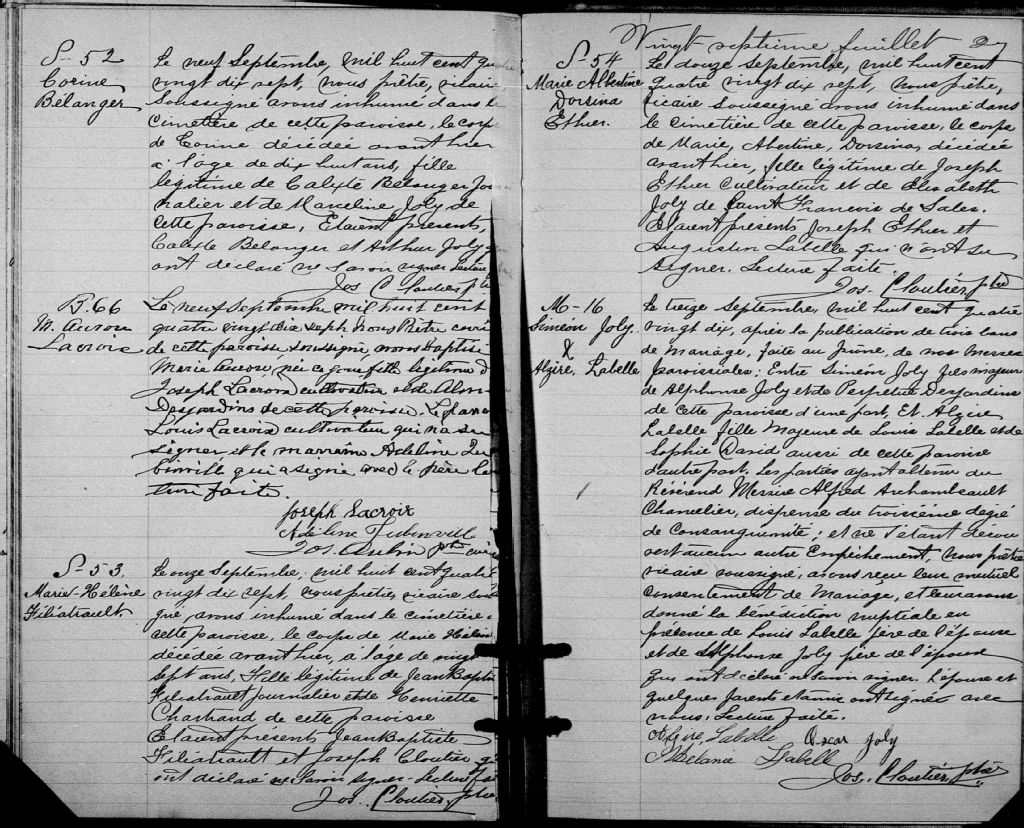 S- 52
Corine
Bélanger
Le neuf Septembre, mil huit cent
vingt dix sept, nous prêtre, vicaire
soussigné avons inhumé dans le
cimetière de cette paroisse, le corps
de Corine décédée avant hier
a l'âge de dix huit ans, fille
légitime de Calixte Bélanger Jour
nalier et de Marceline Joly de
cette paroisse, Etaient présents,
Calixte Bélanger et Arthur Joly
ont déclaré ne savoir signer Lecture
Jos C Cloutier ptre
B. 66
M. Aurore
Lacroix
Le neuf Septembre mil huit cent
quatre vingt dix sept Nous Prêtre curé
de cette paroisse soussigné, avons baptisé
Marie Aurore née ce jour fille légitime de
Joseph Lacroix cultivateur et de
Desjardins de cette paroisse. Le parrain
Louis Lacroix cultivateur qui n'a su
signer et la marraine Adeline Tu
binville qui a signé avec le père Lec
ture faite.
Joseph Lacroix
Adeline Tubinville
Jos. Aubin Ptre curé
S- 53.
Marie-Hélène
Filiatrault.
Le onze Septembre, mil huit cent quatre
vingt dix sept, nous prêtre, vicaire sous
gné, avons inhumé dans le cimetière de
cette paroisse, le corps de Marie Hélène
décédée avant hier, à l'age de vingt
sept ans, fille légitime de Jean Baptiste
Filiatrault journalier et de Henriette
Chartrand de cette paroisse
Etaient présents, Jean Baptiste
Filiatrault et Joseph Cloutier qui
ont déclaré ne savoir signer. Lecture faite
Jos. Cloutier, ptre
Vingt septième feuillet 27
S- 54
Marie Albertine
Dorsina
Ethier.
Le douze Septembre, mil huit cent
quatre vingt dix sept, nous prêtre,
vicaire soussigné avons inhumé dans
le cimetière de cette paroisse, le corps
de Marie, Albertine, Dorsina, décédée
avant hier, fille légitime de Joseph
Ethier Cultivateur et de Elisabeth
Joly de Saint Francois de Sales.
Etaient présents Joseph Ethier et
Augustin Labelle qui n'ont su
signer. Lecture faite.
Jos. Cloutier ptre
M- 16
Siméon Joly.
&
Algire, Labelle
Le treize Septembre, mil huit cent quatre
vingt dix, après la publication de trois bans
de Mariage, faite au prône, de nos messes
paroissiales; Entre Siméon Joly fils majeur
de Alphonse Joly et de Perpétue Desjardins
de cette paroisse d'une part, Et Algire
Labelle fille Majeure de Louis Labelle et de
Sophie David aussi de cette paroisse
d'autre part. Les parties ayant obtenu du
Révérend Messire Alfred Archambeault
Chancelier, dispense du troisième degré
de Consanguinité; et ne s'étant décou
vert aucun autre Empêchement, nous prêtre
vicaire soussigné, avons reçu leur mutuel
Consentement de Mariage, et leur avons
donné la bénédiction nuptiale en
présence de Louis Labelle père de l'épouse
et de Alphonse Joly père de l'époux
qui ont déclaré ne savoir signer. L'épouse et
quelques parents et amis ont signés avec
nous. Lecture faite.
Algire Labelle Oscar Joly
Mélanie Labelle
Jos. Cloutier, ptre